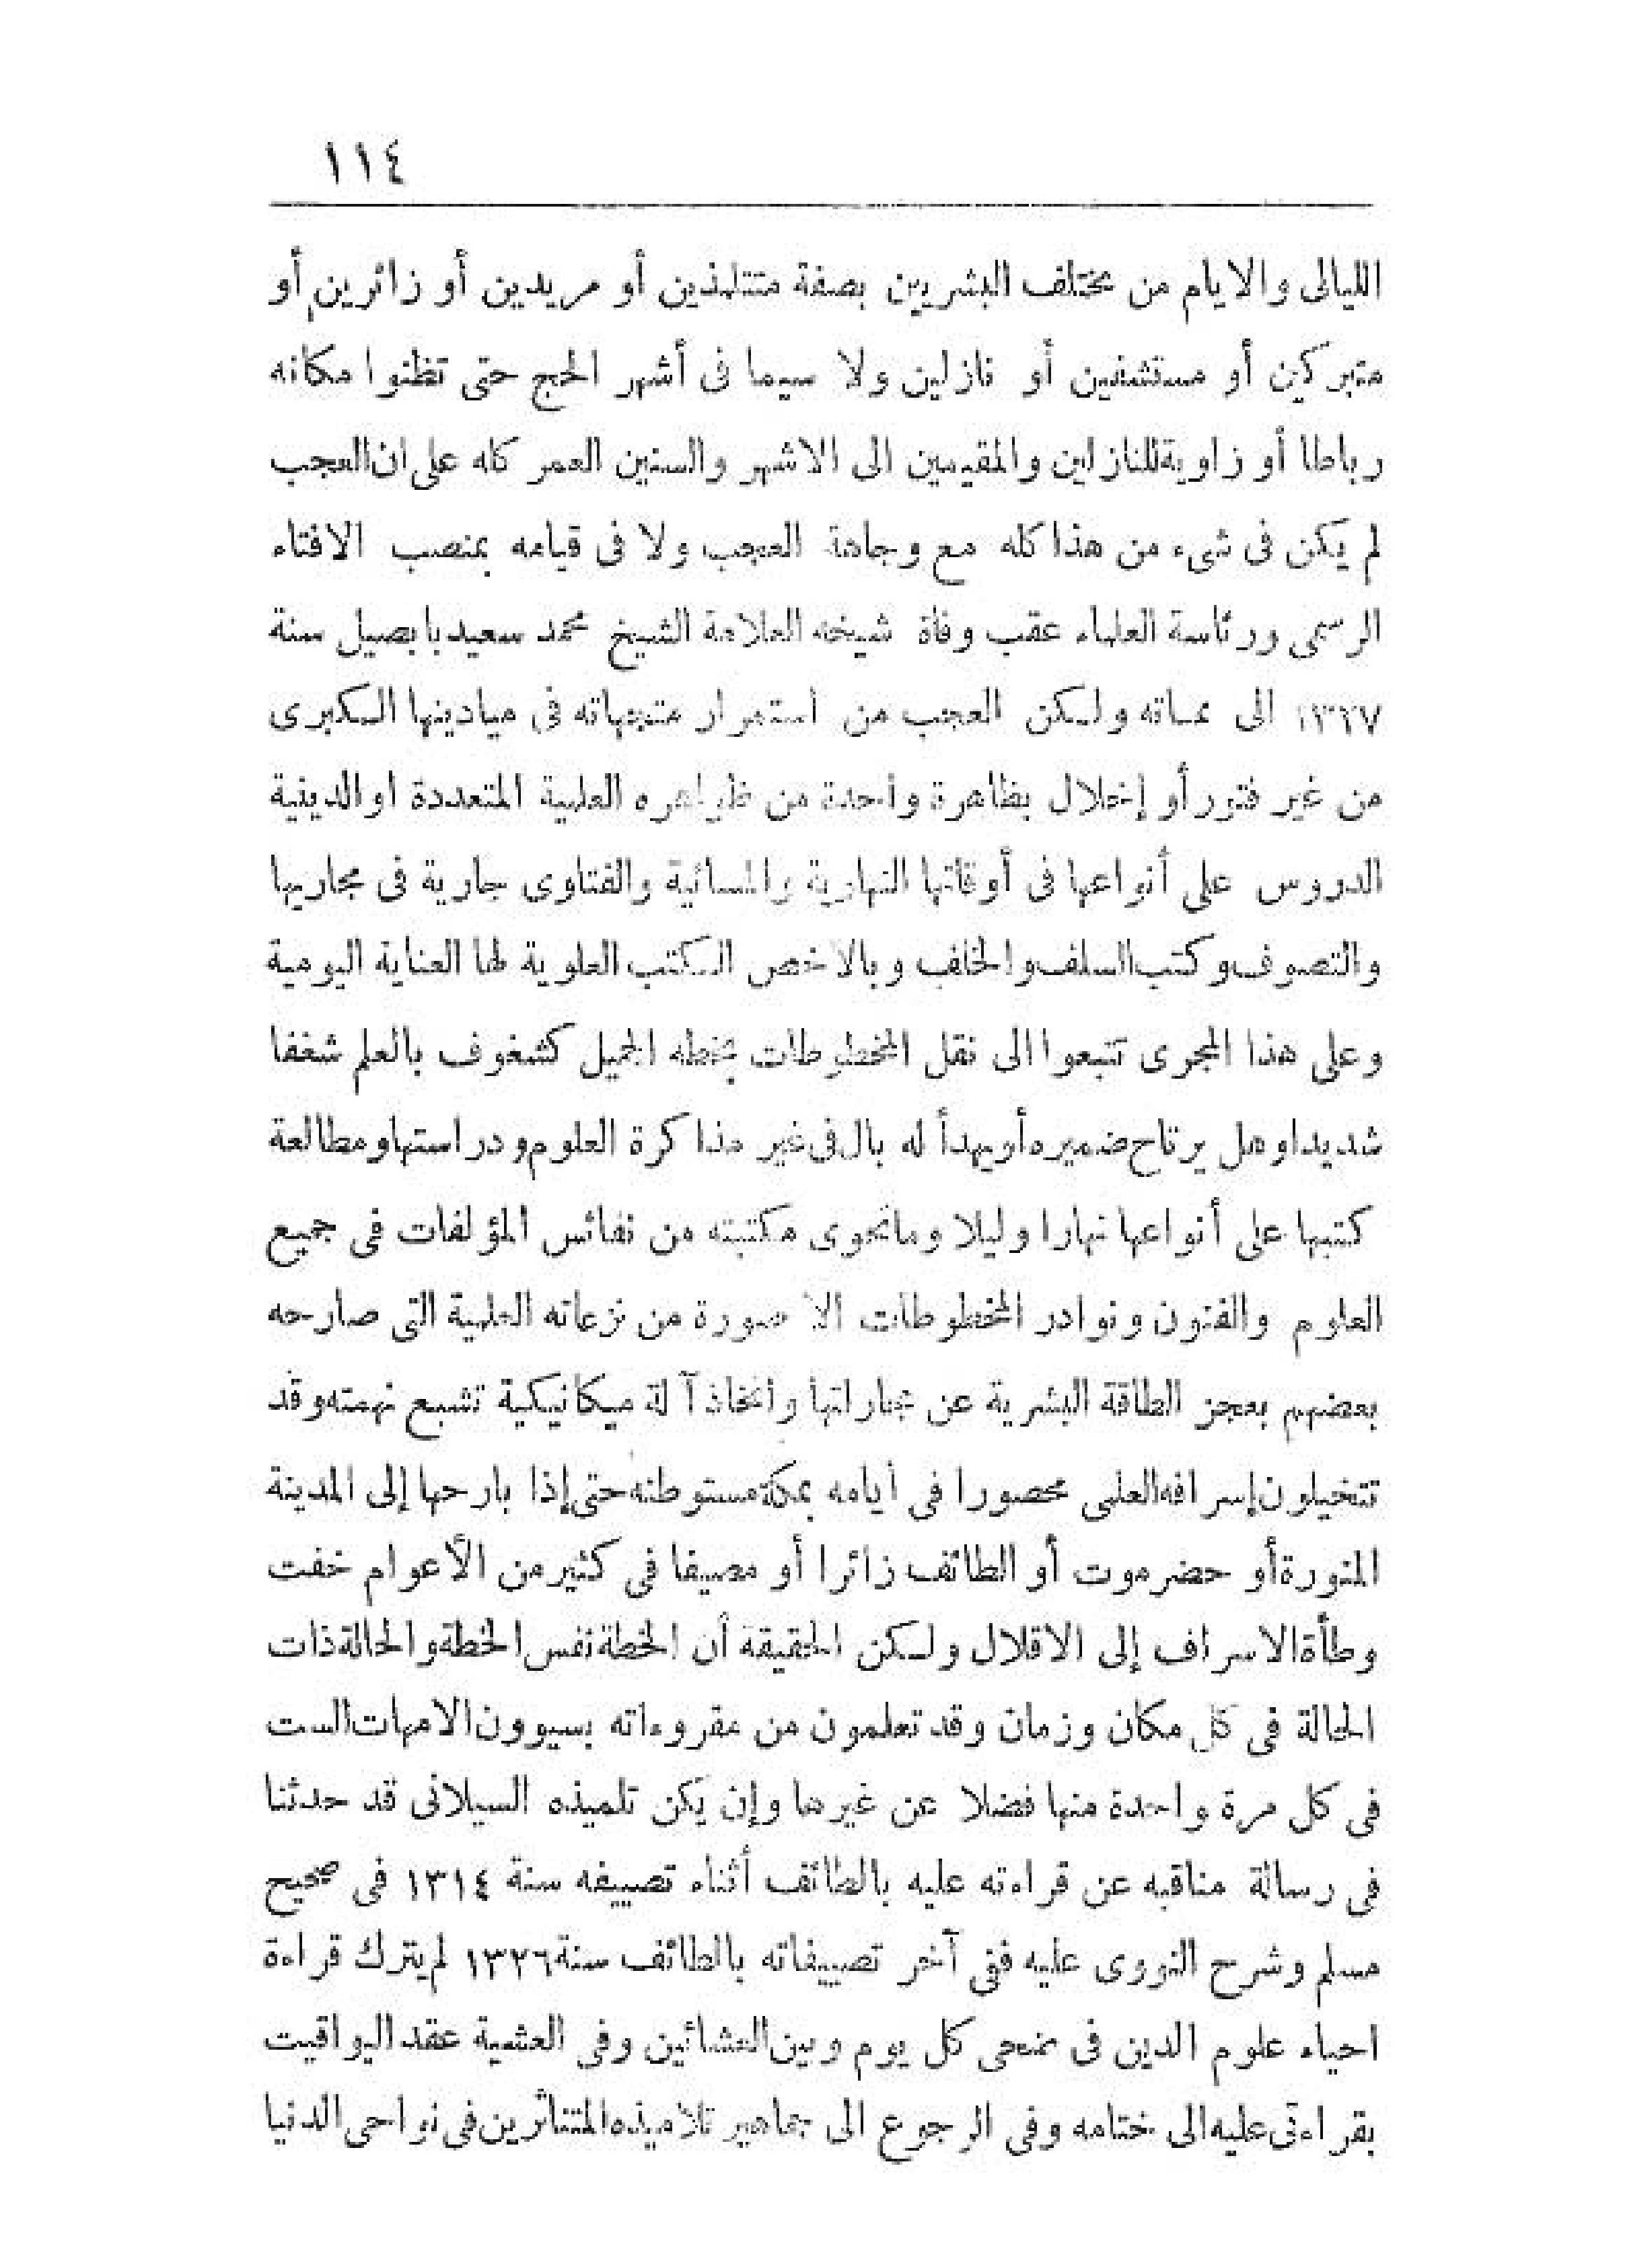 ١١٤
الليالى والايام من مختلف البشريين بصفة متتلمذين أو مريدين أو زائرين أو
متبركين أو مستشفين أو نازلين ولا سيما فى أشهر الحج حتى تظنوا مكانه
رباطا أو زاوية للنازلين والمقيمين الى الاشهر والسنين العمر كله على ان العجب
لم يكن فى شىء من هذا كله مع وجاهة العجب ولا فى قيامه بمنصب الافتاء
الرسمى ورئاسة العلماء عقب وفاة شيخه العلامة الشيخ محمد سعيد بابصيل سنة
الى مماته ولكن العجب من استمرار متجهاته فى ميادينها الكبرى
من غير فتور أو إخلال بظاهرة واحدة من ظواهره العلمية المتعددة او الدينية
الدروس على أنواعها فى أوقاتها النهارية والمسائية والفتاوى جارية فى مجاريها
والتصوف وكتب السلف والخلف وبالاخص الكتب العلوية لها العناية اليومية
وعلى هذا المجرى تتبعوا الى نقل المخطوطات بخطه الجميل كشغوف بالعلم شغفا
شديدا وهل يرتاح ضميره أو يهدأ له بال فى غير مذاكرة العلوم ودراستها ومطالعة
كتبها على أنواعها نهارا وليلا وما تحوى مكتبته من نفائس المؤلفات فى جميع
العلوم والفنون ونوادر المخطوطات الا صورة من نزعاته العلمية التى صارحه
بعضهم بعجز الطاقة البشرية عن مجاراتها واتخاذ آلة ميكانيكية تشبع نهمته وقد
تتخيلون إسرافه العلمى محصورا فى أيامه بمكة مستوطنه حتى إذا بارحها إلى المدينة
المنورة أو حضرموت أو الطائف زائرا أو مصيفا فى كثير من الأعوام خفت
وطأة الاسراف إلى الاقلال ولكن الحقيقة أن الخطة نفس الخطة والحالة ذات
الحالة فى كل مكان وزمان وقد تعلمون من مقروءاته بسيوون الامهات الست
فى كل مرة واحدة منها فضلا عن غيرها وإن يكن تلميذه السيلانى قد حدثنا
فى رسالة مناقبه عن قراءته عليه بالطائف أثناء تصييفه سنة ١٣١٤ فى صحيح
مسلم وشرح النووى عليه ففى آخر تصييفاته بالطائف سنة ١٣٢٦ لم يترك قراءة
احياء علوم الدين فى ضحى كل يوم وبين العشائين وفى العشية عقد اليواقيت
بقراءتى عليه الى ختامه وفى الرجوع الى جماهير تلاميذه المتناثرين فى نواحى الدنيا